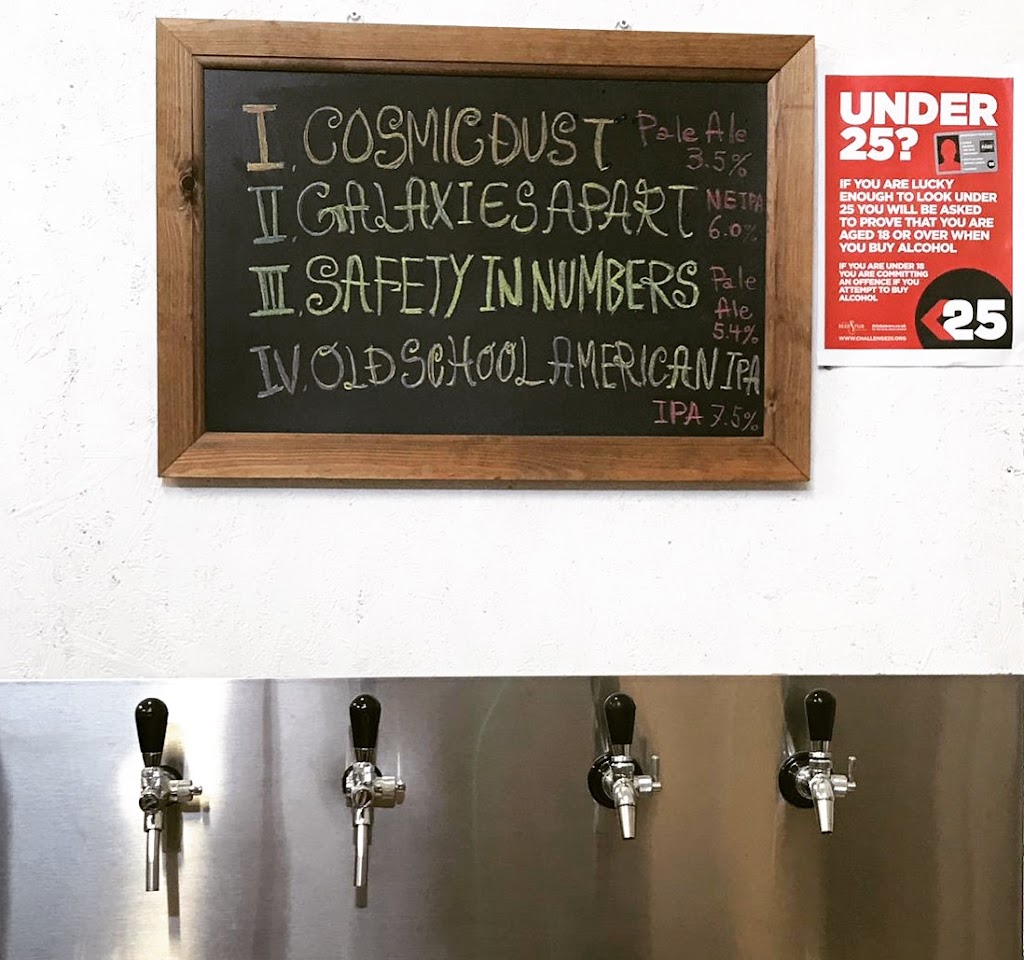 I. COSMIC DUST Pale Ale
3.5%
II. GALAXIES APART NEIPA
6.0%
III. SAFETY IN NUMBERS Pale
Ale
5.4%
IV. OLD SCHOOL AMERICAN IPA
IPA 7.5%
UNDER
25?
IF YOU ARE LUCKY
ENOUGH TO LOOK UNDER
25 YOU WILL BE ASKED
TO PROVE THAT YOU ARE
AGED 18 OR OVER WHEN
YOU BUY ALCOHOL
IF YOU ARE UNDER 18
YOU ARE COMMITTING
AN OFFENCE IF YOU
ATTEMPT TO BUY
ALCOHOL
25
WWW.CHALLENGE25.ORG